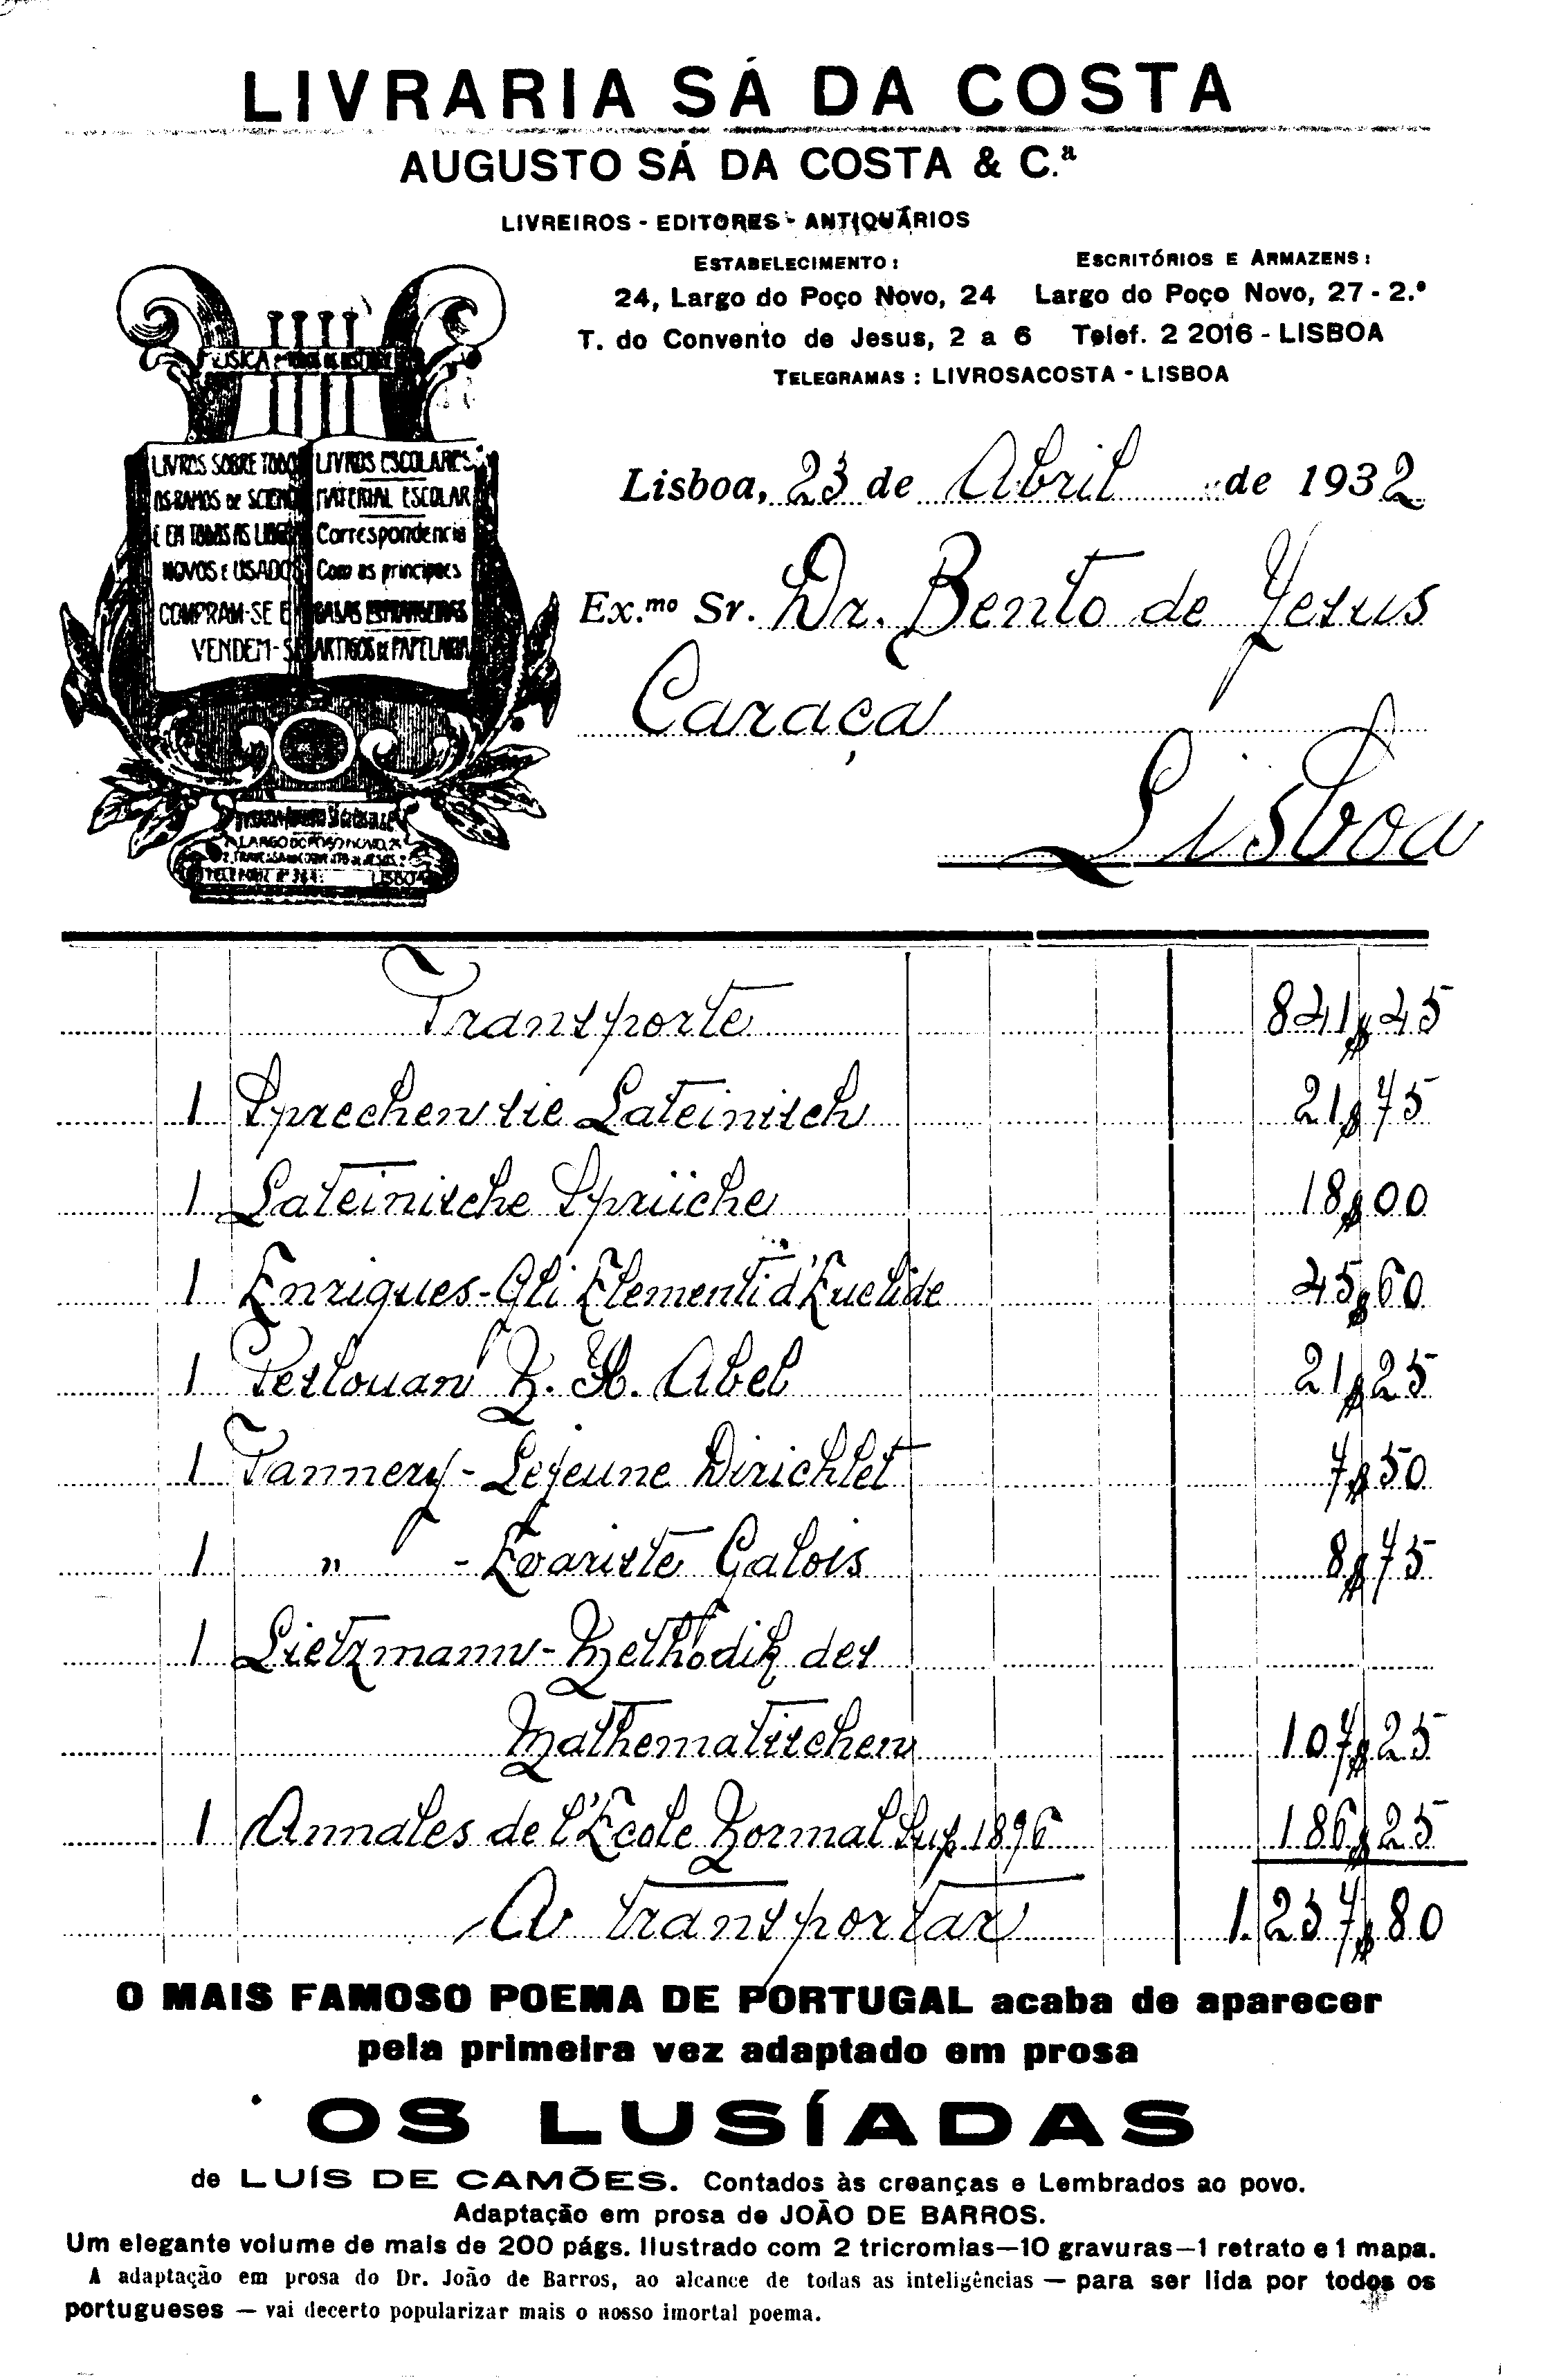 LIVRARIA SÁ DA COSTA
AUGUSTO SÁ DA COSTA & C.ª
LIVREIROS - EDITORES - ANTIQUÁRIOS
ESTABELECIMENTO:
24, Largo do Poço Novo, 24
T. do Convento de Jesus, 2 a 6
ESCRITÓRIOS E ARMAZENS:
Largo do Poço Novo, 27 - 2.º
Telef. 2 2016 - LISBOA
TELEGRAMAS: LIVROSACOSTA - LISBOA
LIVROS SOBRE TODO
OS RAMOS DE SCIENC
E EM TODAS AS LING
NOVOS E USADOS
COMPRAM-SE E
VENDEM-S
LIVROS ESCOLARES
MATERIAL ESCOLAR
Correspondencia
Com as principaes
CASAS ESTRANGEIRAS
ARTIGOS DE PAPELARIA
LARGO DO POÇO NOVO, 24
LISBOA
Lisboa, 23 de Abril de 1932
Ex.mo Sr. Dr. Bento de Jesus
Caraça
Lisboa
Transporte 841$45
1 Sprechen sie Lateinisch 21$75
1 Lateinische Sprüche 18$00
1 Enriques-Gli Elementi d'Euclide 45$60
1 Peslouan N. H. Abel 21$25
1 Tannery - Lejeune Dirichlet 7$50
1 " - Evariste Galois 8$75
1 Lietzmann - Methodik des
Mathematischen 107$25
1 Annales de l'École Normal Sup. 1896 186$25
A transportar 1.257$80
O MAIS FAMOSO POEMA DE PORTUGAL acaba de aparecer
pela primeira vez adaptado em prosa
OS LUSÍADAS
de LUÍS DE CAMÕES. Contados às creanças e Lembrados ao povo.
Adaptação em prosa de JOÃO DE BARROS.
Um elegante volume de mais de 200 págs. Ilustrado com 2 tricromias—10 gravuras—1 retrato e 1 mapa.
A adaptação em prosa do Dr. João de Barros, ao alcance de todas as inteligências — para ser lida por todos os
portugueses — vai decerto popularizar mais o nosso imortal poema.